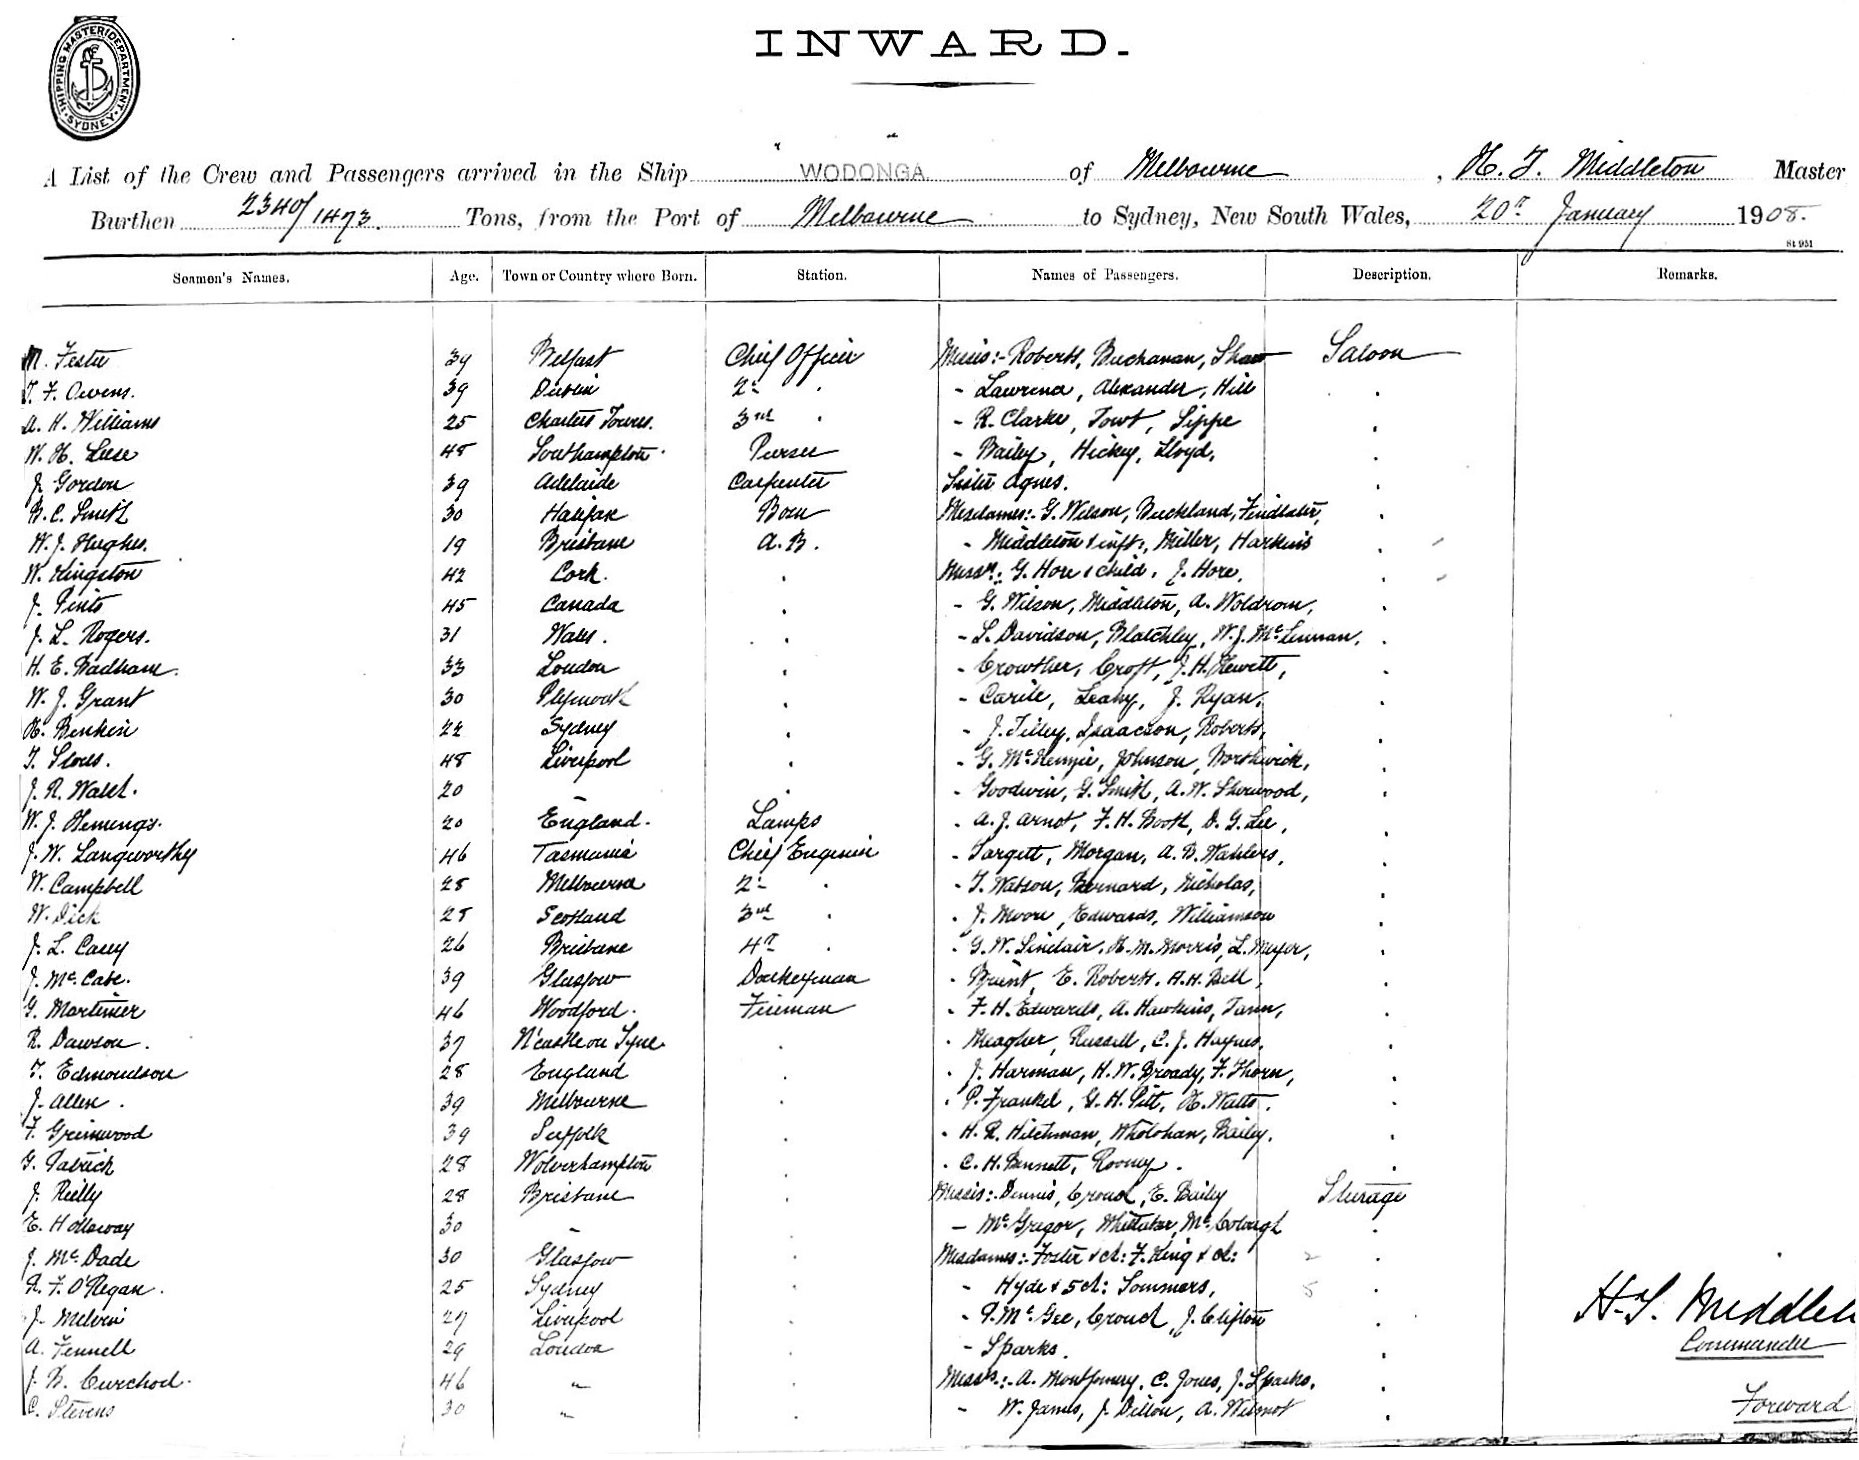 INWARD.
SHIPPING MASTER DEPARTMENT. SYDNEY
A List of the Crew and Passengers arrived in the Ship " WODONGA " of Melbourne, H. T. Middleton Master
Burthen 2340/1473. Tons, from the Port of Melbourne to Sydney, New South Wales, 20th January 1908.
Seamen's Names. Age. Town or Country where Born. Station. Names of Passengers. Description. Remarks.
M. 39 Belfast Chief Officer Misses:- Roberts, Buchanan, Shaw Saloon
T. F. Owens. 39 Dublin 2nd " - Lawrence, Alexander, Hill "
A. H. Williams 25 Charters Towers. 3rd " - R. Clarke, Towt, Sippe "
W. H. Leese 48 Southampton Purser - Bailey, Hickey, Lloyd. "
J. Gordon 39 Adelaide Carpenter Sister Agnes. "
B. C. Smith 30 Halifax Bosn Mesdames:- G. Wilson, Buckland, Findlater, "
W. J. Hughes. 19 Brisbane A.B. - Middleton & inft:, Miller, Harkins "
W. Kingston 42 Cork. " Messrs: G. Hore & child, J. Hore, "
J. Pinto 45 Canada " - G. Wilson, Middleton, A. Woldrom, "
J. L. Rogers. 31 Wales. " - S. Davidson, Blatchley, W. J. McLennan, "
H. E. Badham. 33 London " - Crowther, Croft, J. H. Hewitt, "
W. J. Grant 30 Plymouth " - Carile, Leahy, J. Ryan, "
H. Binkin 22 Sydney " - J. Tilley, Isaacson, Roberts, "
T. 48 Liverpool " - G. McKenzie, Johnson, Borthwick, "
J. R. Walsh. 20 " " - Goodwin, G. Smith, A. W. Sherwood, "
W. J. Hemings. 20 England. Lamps - A. J. Arnot, F. H. Booth, D. G. Lee, "
J. W. Langworthy 46 Tasmania Chief Engineer - Targett, Morgan, A. B. Wahlers, "
W. Campbell 28 Melbourne 2nd " - T. Watson, Bernard, Nicholas, "
W. Dick 28 Scotland 3rd " - J. Moore, Edwards, Williamson "
J. L. Casey 26 Brisbane 4th " - G. W. Sinclair, H. M. Morris, L. Meyer, "
J. McCabe. 39 Glasgow Donkeyman - E. Roberts, H. H. Bell, "
G. Mortimer 46 Woodford. Fireman - F. H. Edwards, A. Hawkins, Tann, "
R. Dawson. 37 N'castle on Tyne " - Meagher, Russell, C. J. Haynes, "
T. Edmondson 28 England " - J. Harman, H. W. Broady, F. Thorn, "
J. Allen. 39 Melbourne " - P. Frankel, G. H. Pitt, H. Watts. "
F. Grimwood 39 Suffolk " - H. R. Hitchman, Wholohan, Bailey, "
G. Patrick 28 Wolverhampton " - C. H. Bennett, Rooney. "
J. Reilly 28 Brisbane " Misses:- Dennis, Crouch, E. Bailey Steerage
E. Holloway 30 " " - McGregor, Whittaker, "
J. McDade 30 Glasgow " Mesdames:- Foster & ch: F. King & ch: 2 "
R. F. O'Regan. 25 Sydney " - Hyde & 5 ch: Sommers, 5 "
J. Melvin 27 Liverpool " - P. McGee, Crouch, J. Clifton "
A. Fennell 29 London " - Sparks. "
J. B. Curchod. 46 " " Messrs:- A. Montgomery, C. Jones, J. Sparks, "
C. Stevens 30 " " - W. James, J. Dillon, A. Wilmot "
H. T. Middlet
Commander
Forward